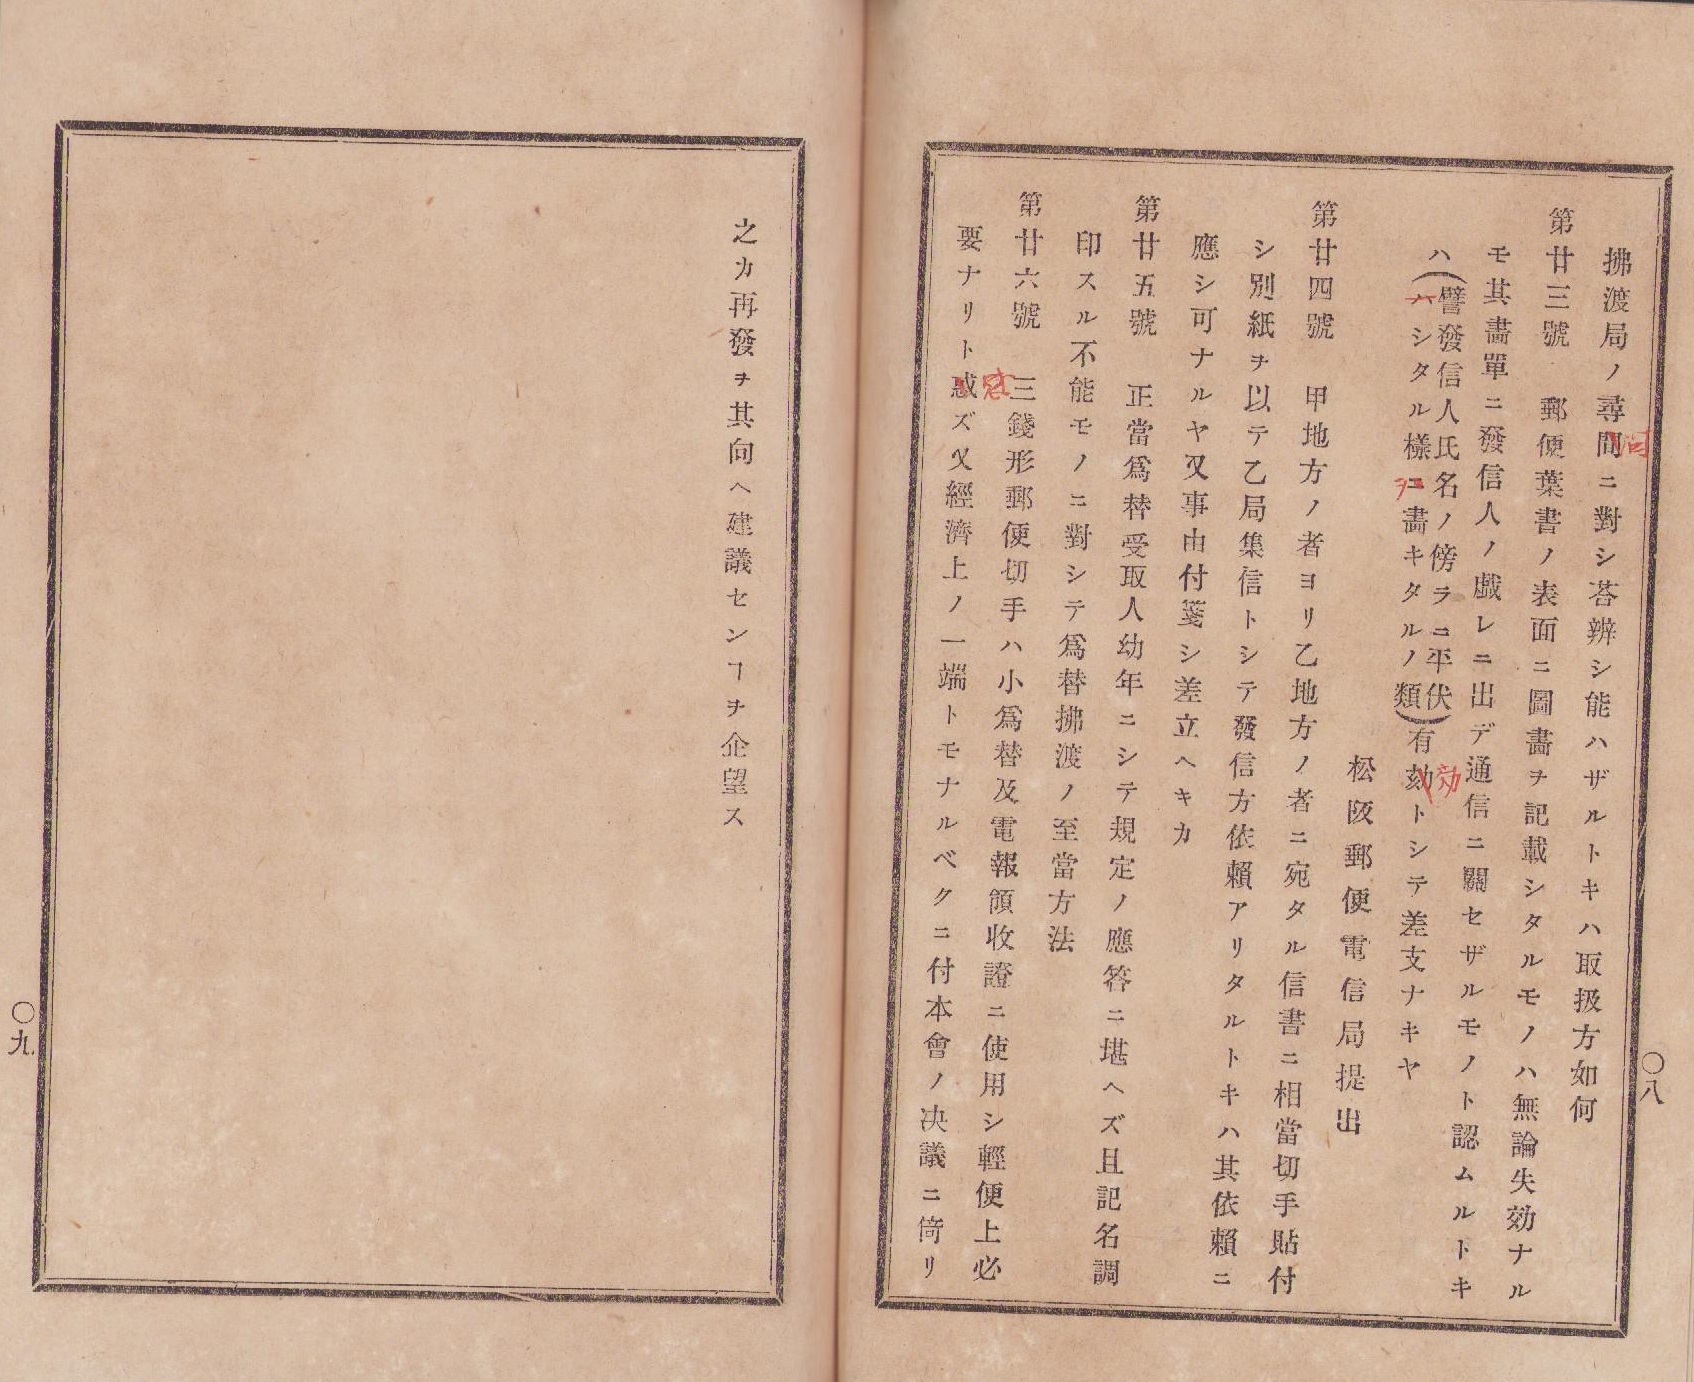 拂渡局ノ尋問ニ對シ荅辨シ能ハザルトキハ取扱方如何
第廿三號　郵便葉書ノ表面ニ圖畵ヲ記載シタルモノハ無論失効ナル
モ其畵單ニ發信人ノ戯レニ出デ通信ニ關セザルモノト認ムルトキ
ハ(譬發信人氏名ノ傍ラニ平伏
ハシタル樣ニ畵キタルノ類)有劾トシテ差支ナキヤ
問
ヲ
効
松阪郵便電信局提出
第廿四號　甲地方ノ者ヨリ乙地方ノ者ニ宛タル信書ニ相當切手貼付
シ別紙ヲ以テ乙局集信トシテ發信方依賴アリタルトキハ其依賴ニ
應シ可ナルヤ又事由付箋シ差立ヘキカ
第廿五號　正當爲替受取人幼年ニシテ規定ノ應答ニ堪ヘズ且記名調
印スル不能モノニ對シテ爲替拂渡ノ至當方法
第廿六號　三錢形郵便切手ハ小爲替及電報領收證ニ使用シ輕便上必
要ナリト惑ズ又經濟上ノ一端トモナルベクニ付本會ノ决議ニ
〇八
之カ再發ヲ其向ヘ建議センヿヲ企望ス
〇九